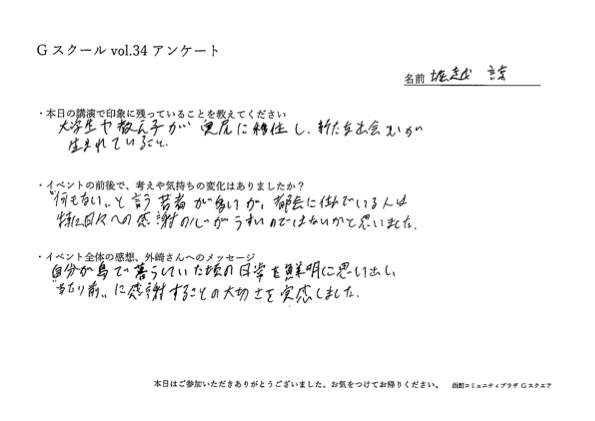 Gスクール vol.34 アンケート
名前 堀越
・本日の講演で印象に残っていることを教えてください
大学生や教え子が奥尻に移住し、新たな出会いが
生まれていること。
・イベントの前後で、考えや気持ちの変化はありましたか？
"何もない"と言う若者が多いが、都会に住んでいる人は
特に日々への感謝の心がうすいのではないかと思いました。
・イベント全体の感想、外崎さんへのメッセージ
自分が島で暮らしていた頃の日常を鮮明に思い出し
"当たり前"に感謝することの大切さを実感しました。
本日はご参加いただきありがとうございました。お気をつけてお帰りください。 函館コミュニティプラザ Gスクエア